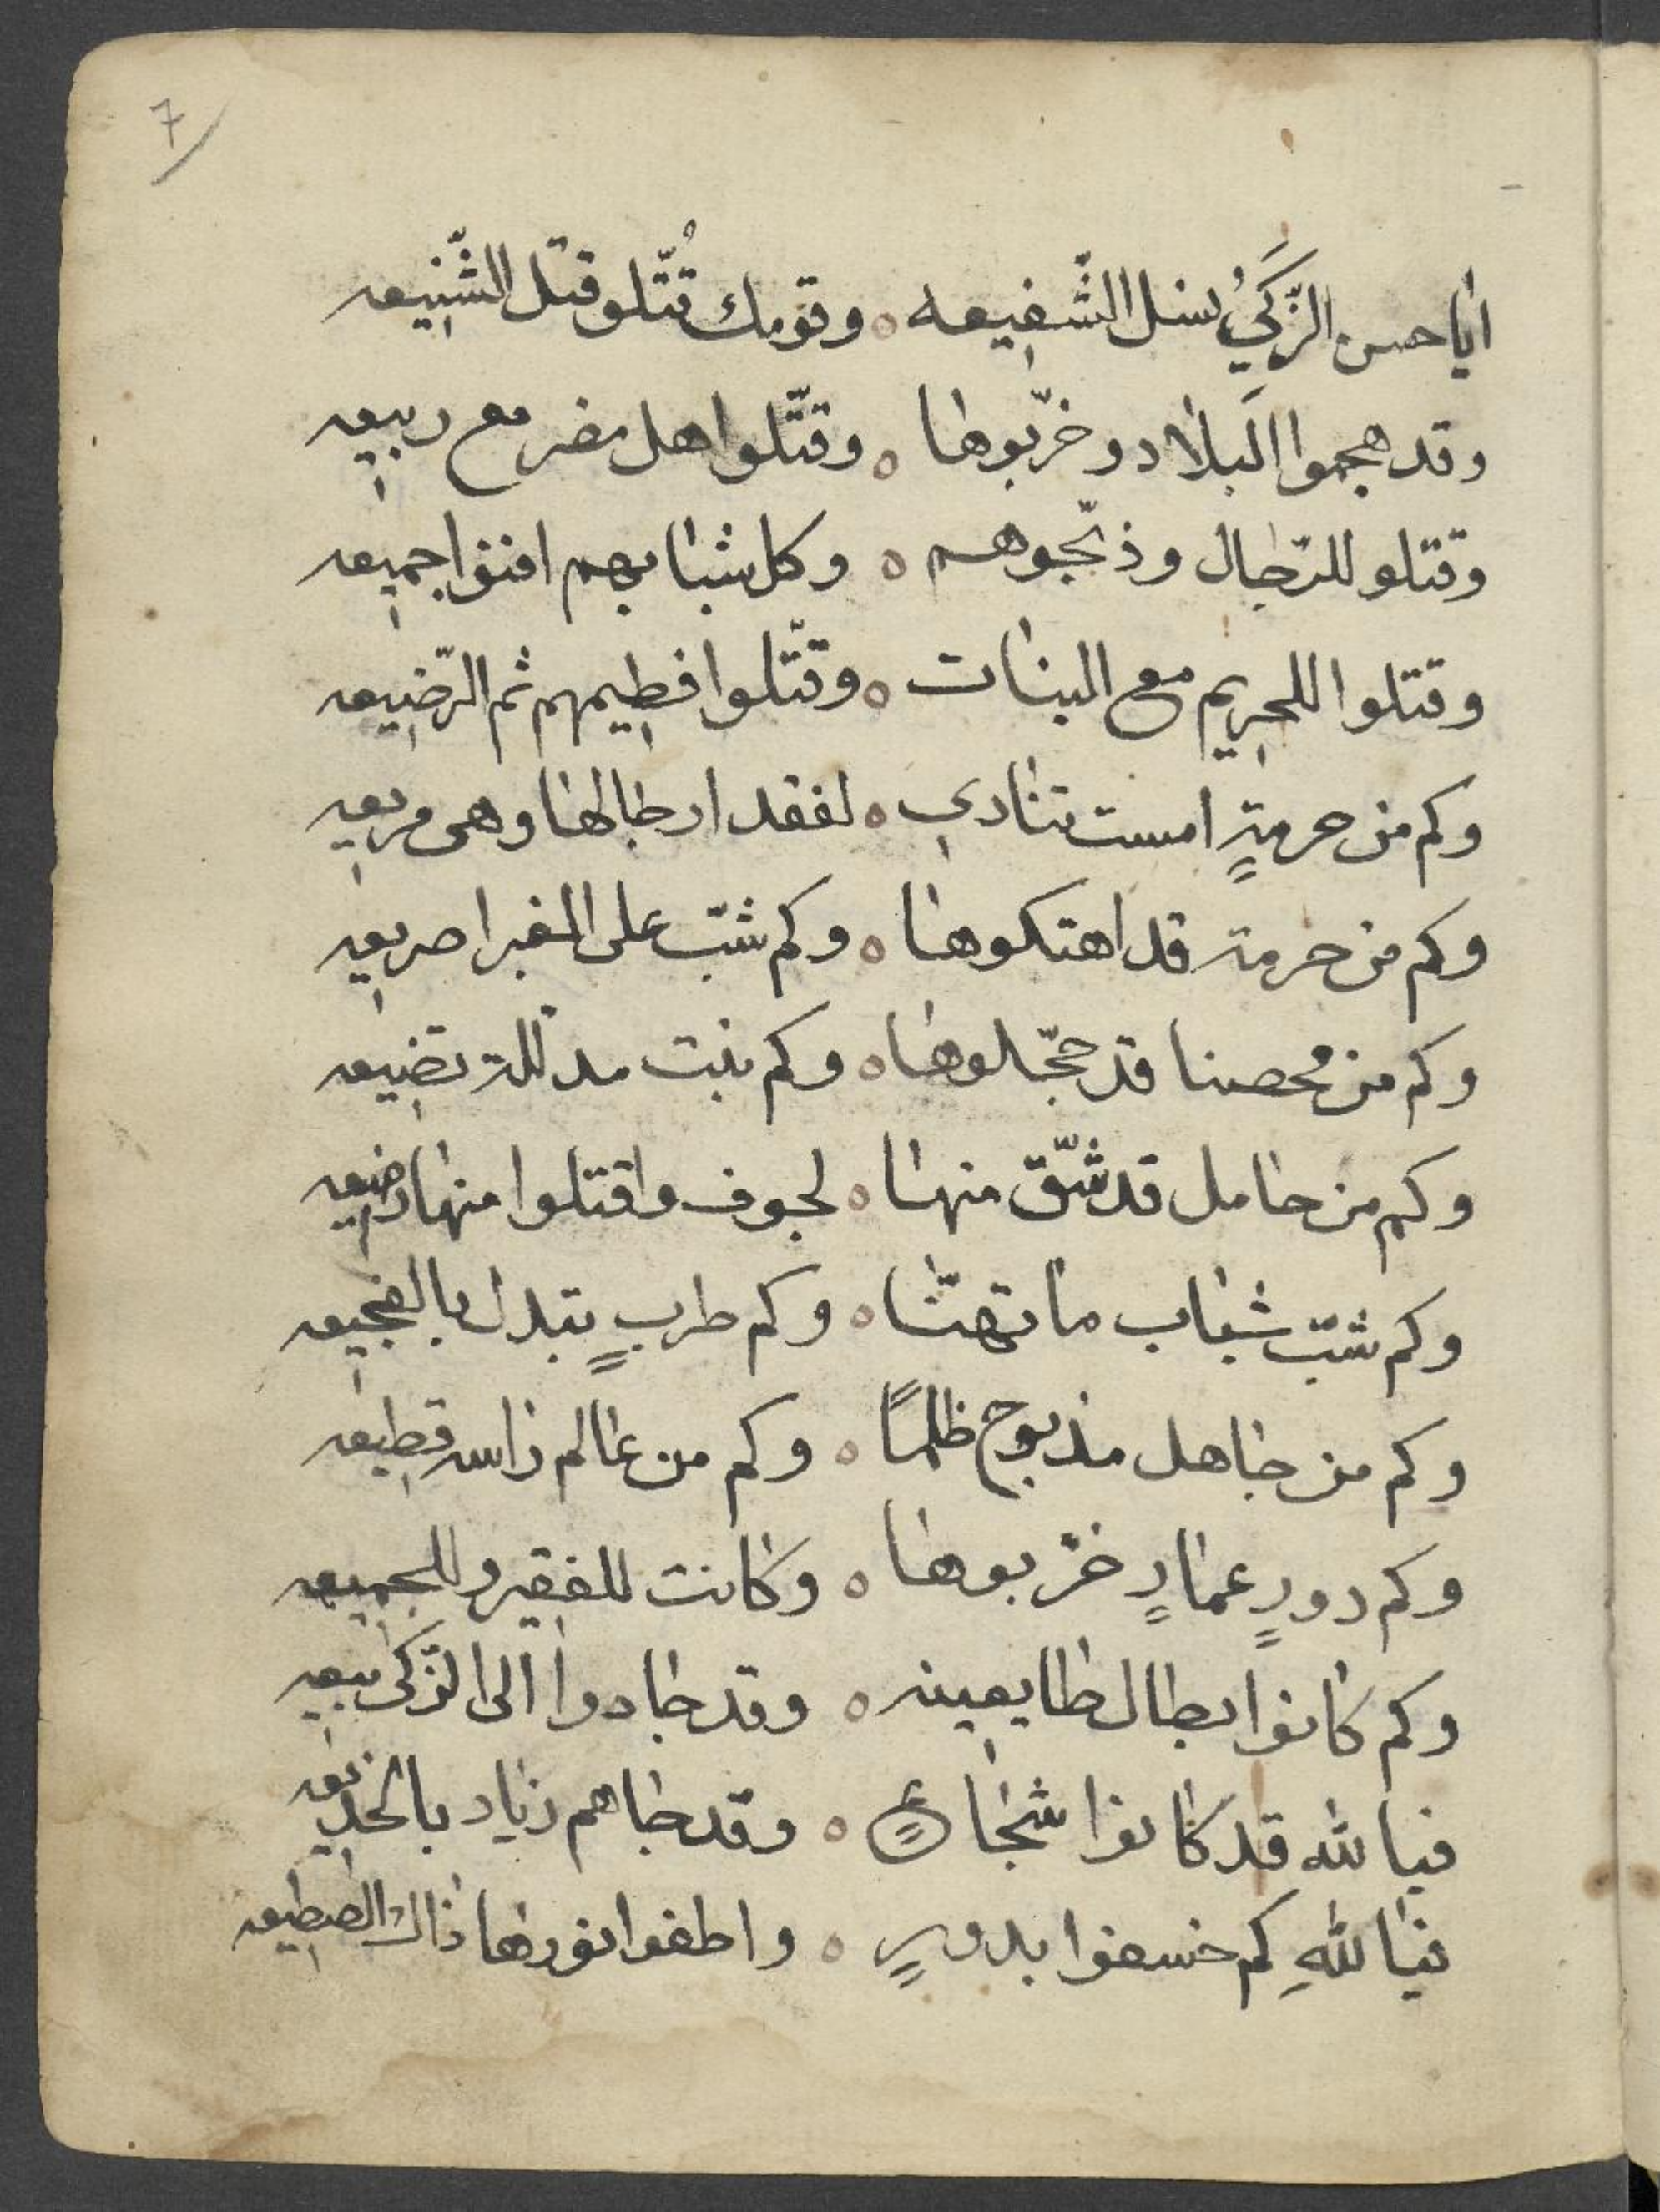 7
ايا حسن الزَّكَيُ نسل الشّفيعه ٥ وقومك قُتّلو قتل الشّنيعه
وقد هجموا الَبلاد وخرّبوها ٥ وقتّلوا اهل مضر مع ربيعه
وقتلو للرّجال وذبّحوهم ٥ وكل شبابهم افنوا جميعه
وقتلوا للحريم مع البنات ٥ وقتّلوا فطيمهم ثم الرّضيعه
وكم من حرمةٍ امست تنادي ٥ لفقد ارجالها وهى مريعه
وكم من حرمة قد اهتكوها ٥ وكم شبّ على الغبرا صريعه
وكم من محصنا قد حجّلوها ٥ وكم بنت مدللة تضيعه
وكم من حامل قد شّق منها ٥ لجوف واقتلوا منها رضيعه
وكم شبّ شباب ما تهنّا ٥ وكم طربٍ تبدل بالفجيعه
وكم من جاهل مذبوح ظلمًا ٥ وكم من عالم راسه قطيعه
وكم دورٍ عمارٍ خرّبوها ٥ وكانت للفقير وللجميعه
وكم كانوا بطال طايعينه ٥ وقد جادوا الى الزكى بيعه
فيا لله قد كانوا شجاعٍ ٥ وقد جاهم زياد بالخديعه
فيا للهِ كم خسفوا بدورٍ ٥ واطفوا نورها ذاك